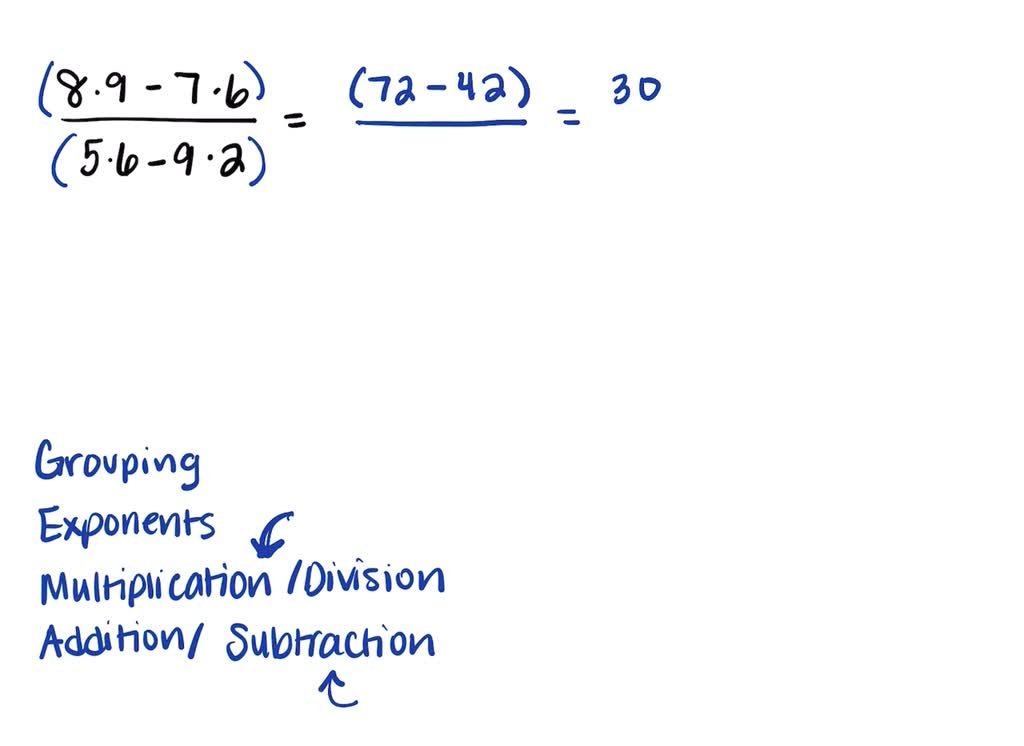 (8·9 - 7·6) = (72 - 42) = 30
(5·6 - 9·2)
Grouping
Exponents
Multiplication /Division
Addition/ Subtraction